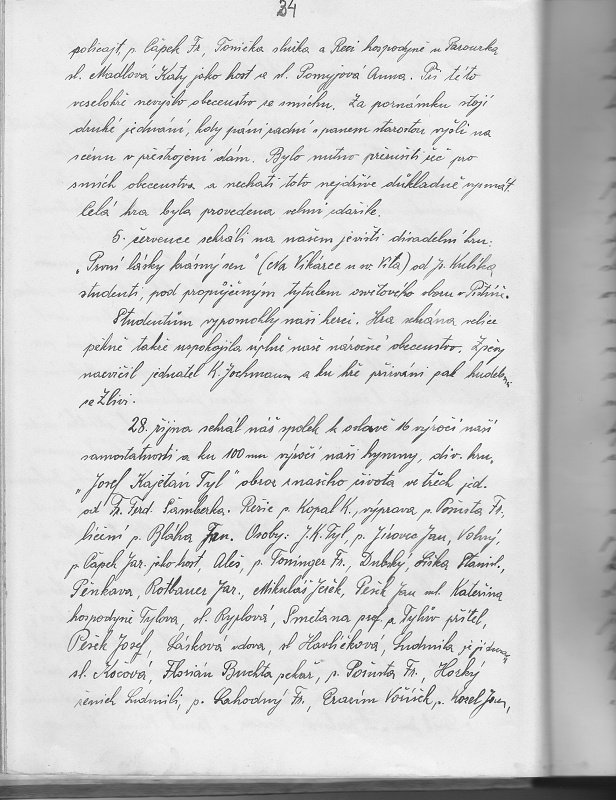 34
policajt, p. Čápek Fr. Tonička služka a Rezi hospodyně u Parourka
sl. Madlová Katy jako host a sl. Pomyjová Anna. Při této
veselohře nevyšlo obecenstvo ze smíchu. Za poznámku stojí
druhé jednání, kdy páni radní s panem starostou vyšli na
scénu v přestrojení dám. Bylo nutno přerušiti řeč pro
smích obecenstva a nechati toto nejdříve důkladně vysmát.
Celá hra byla provedena velmi zdařile.
5. července sehráli na našem jevišti divadelní hru:
„První lásky krásný sen" (Na Vikárce u sv. Víta) od J. Kubíka
studenti, pod propůjčeným tytulem osvětového sboru v Pištíně.
Studentům vypomohly naši herci. Hra sehrána velice
pěkně takže uspokojila úplně naše náročné obecenstvo. Zpěvy
nacvičil jednatel K. Jochmann a ku hře přizváni pak hudebníci
ze Zlivi.
28. října sehrál náš spolek k oslavě 16 výročí naší
samostatnosti a ku 100mu výročí naší hymny, div. hru
„Josef Kajetán Tyl" obraz z našeho života ve třech jed.
od Fr. Ferd. Šamberka. Režie p. Kopal K., výprava p. Pošusta Fr.
líčení p. Bláha Jan. Osoby: J. K. Tyl, p. Jírovec Jan, Volný,
p. Čápek Jar. jako host, Aleš, p. Toninger Fr., Dubský, Liška Stanisl.,
Pěnkava, Rotbauer Jar., Mikuláš Ješek, Pešek Jan ml. Kateřina
hospodyně Tylova, sl. Ryplová, Smetana prof. a Tylův přítel,
Pešek Josef, Lásková vdova, sl. Havlíčková, Ludmila její dcera,
sl. Kocová, Florián Buchta pekař, p. Pošusta Fr., Horký
ženich Ludmili, p. Lahodný Fr., Erazim Voříšek p. Kosel Jan,